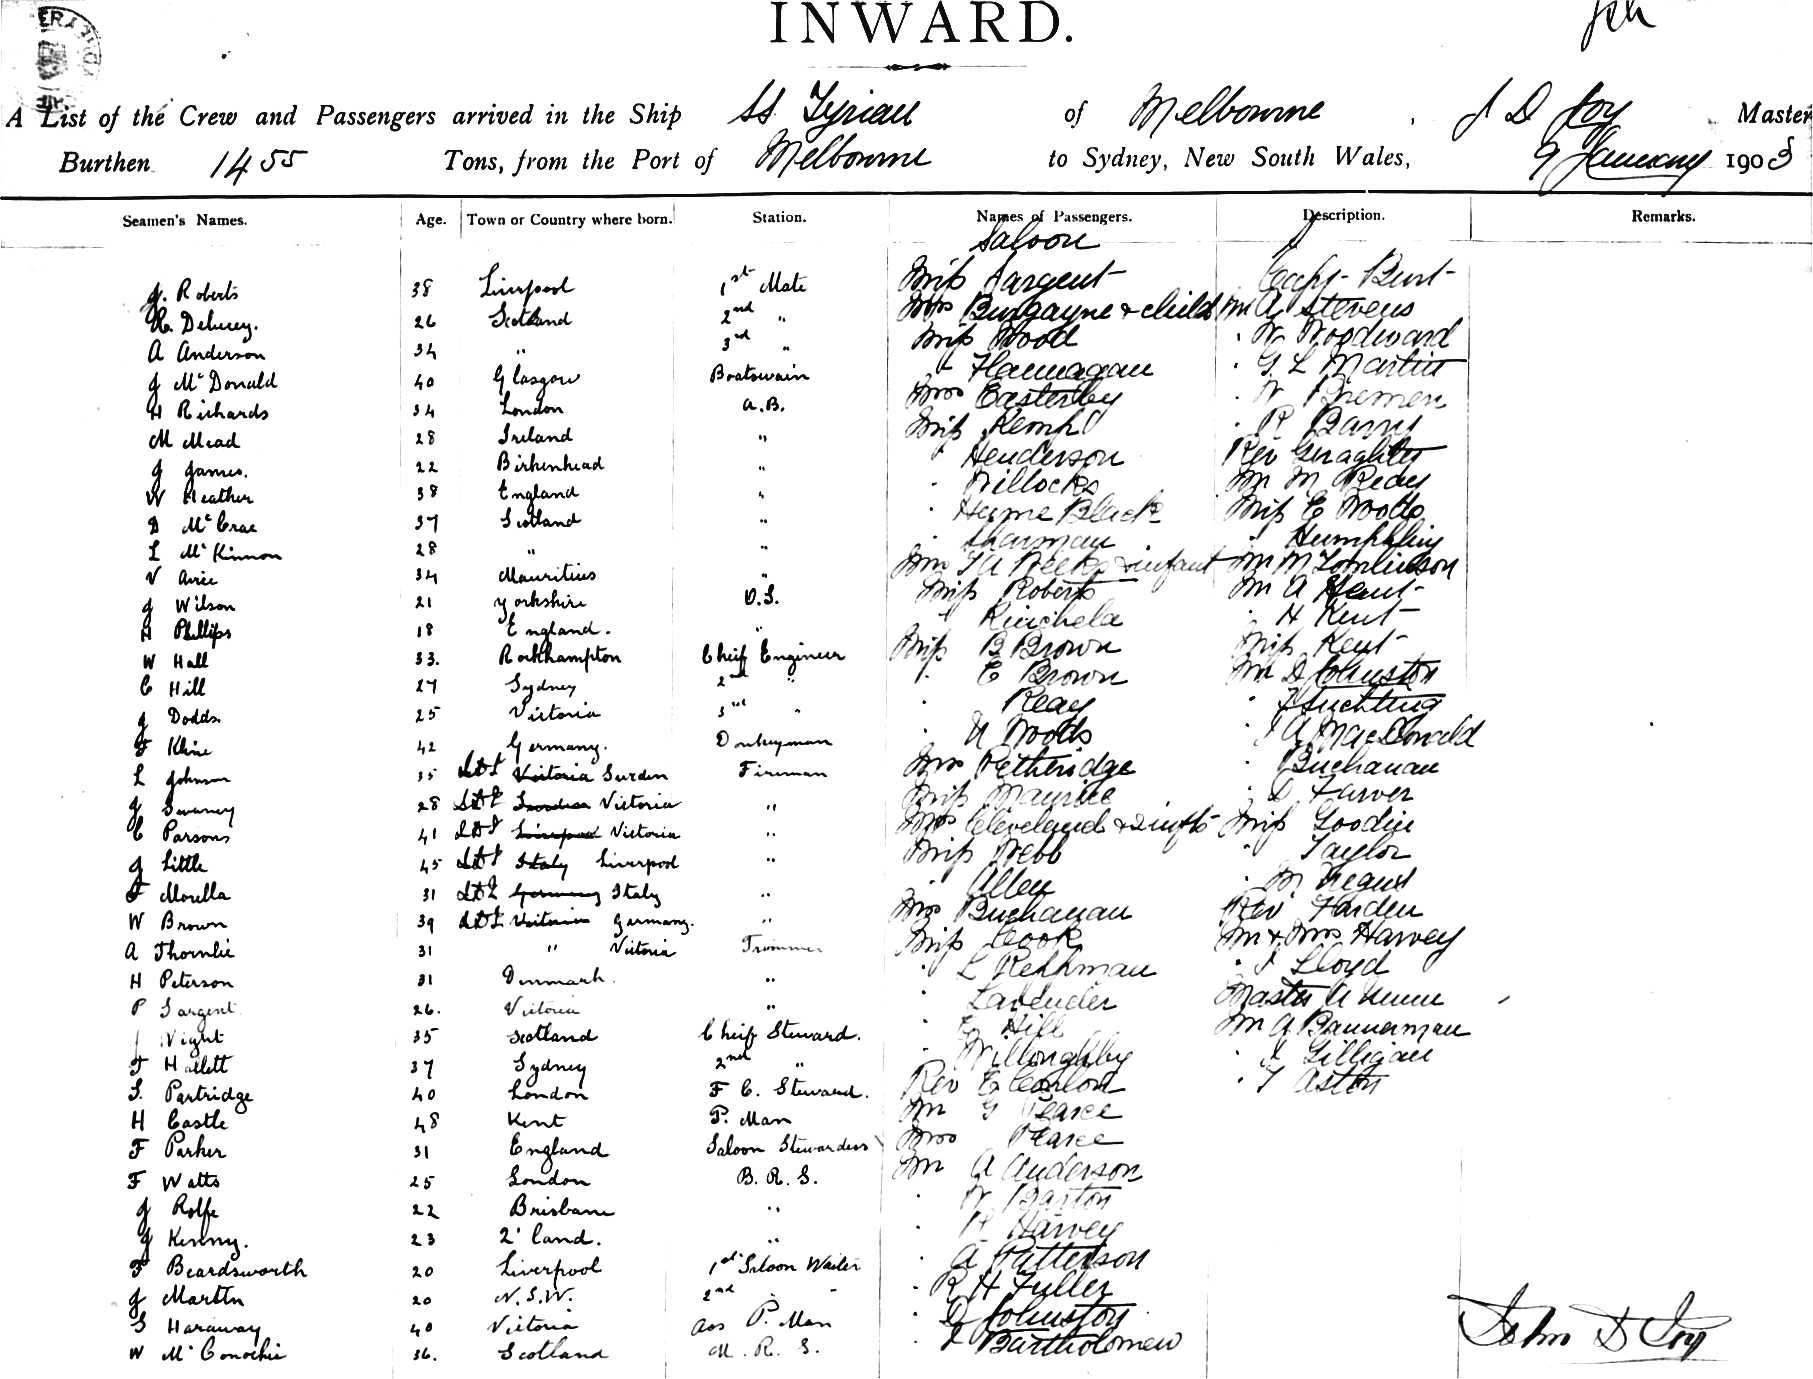 INWARD.
A List of the Crew and Passengers arrived in the Ship SS Tyrian of Melbourne, J D Joy Master
Burthen 1455 Tons, from the Port of Melbourne to Sydney, New South Wales, 9 January 1903
Seamen's Names. Age. Town or Country where born. Station. Names of Passengers. Description. Remarks.
Saloon
J. Roberts 38 Liverpool 1st Mate Miss Sargent Capt. Burt
R. 26 Scotland 2nd " Mrs Burgayne & child Mr A Stevens
A Anderson 34 " 3rd " Miss Wood " W Woodward
J McDonald 40 Glasgow Boatswain " Flannagan " G L Martin
H Richards 34 London A.B. Mrs Easterby " W Bremen
M Mead 28 Ireland " Miss Kemp " R Barry
J James. 22 Birkenhead " Henderson Rev Geraghty
W Heather 38 England " " Willocks Mr M Reay
D McCrae 37 Scotland " " Hume Black Miss E Woods
L McKinnon 28 " " " Sharman " Humphley
V 34 Mauritius " Mrs T A Weeks & infant Mr M Tomlinson
J Wilson 21 Yorkshire O.S. Miss Roberts Mr A Kent
H Phillips 18 England. " " Kinchela " H Kent
W Hall 33. Rockhampton Cheif Engineer Miss B Brown Miss Kent
C Hill 27 Sydney 2nd " " E Brown Mr D Johnston
J Dodds. 25 Victoria 3rd " " Reay " Suchting
F Kline 42 Germany. Donkeyman " N Woods " J A MacDonald
L Johnson 35 Victoria Sweden Fireman Mrs Petheridge " Buchanan
J Swaney 28 Sweden Victoria " Miss Maurice " D Farver
C Parsons 41 Liverpool Victoria " Mrs Cleveland & 2 infts Miss Goodin
J Little 45 Italy Liverpool " Miss Webb " Taylor
F Morella 31 Germany Italy " " Allen " M
W Brown 39 Victoria Germany. " Mrs Buchanan Rev Harden
A Thornlie 31 " Victoria Trimmer Miss Cook Mr & Mrs Harvey
H Peterson 31 Denmark. " " L Rehhman " J Lloyd
P Sargent 26. Victoria " " Lavender Master A
J Wight 35 Scotland Cheif Steward. " E Hill Mr A Bannerman
F Hallett 37 Sydney 2nd " " Willoughby " J Gilligan
S. Partridge 40 London F C. Steward. Rev E Conlon " T Aston
H Castle 48 Kent P. Man Mr G Pearce
F Parker 31 England Saloon Stewardess Mrs Pearce
F Watts 25 London B. R. S. Mr A Anderson
J Rolfe 22 Brisbane " " W Barton
J Kenny. 23 Q'land. " " R Harvey
F Beardsworth 20 Liverpool 1st Saloon Waiter " A Patterson
J Martin 20 N.S.W. 2nd " " " R H Fuller
S Haraway 40 Victoria Ass P. Man " D Johnston
W McConochie 36. Scotland M. R. S. " J Bartholomew
John D Joy